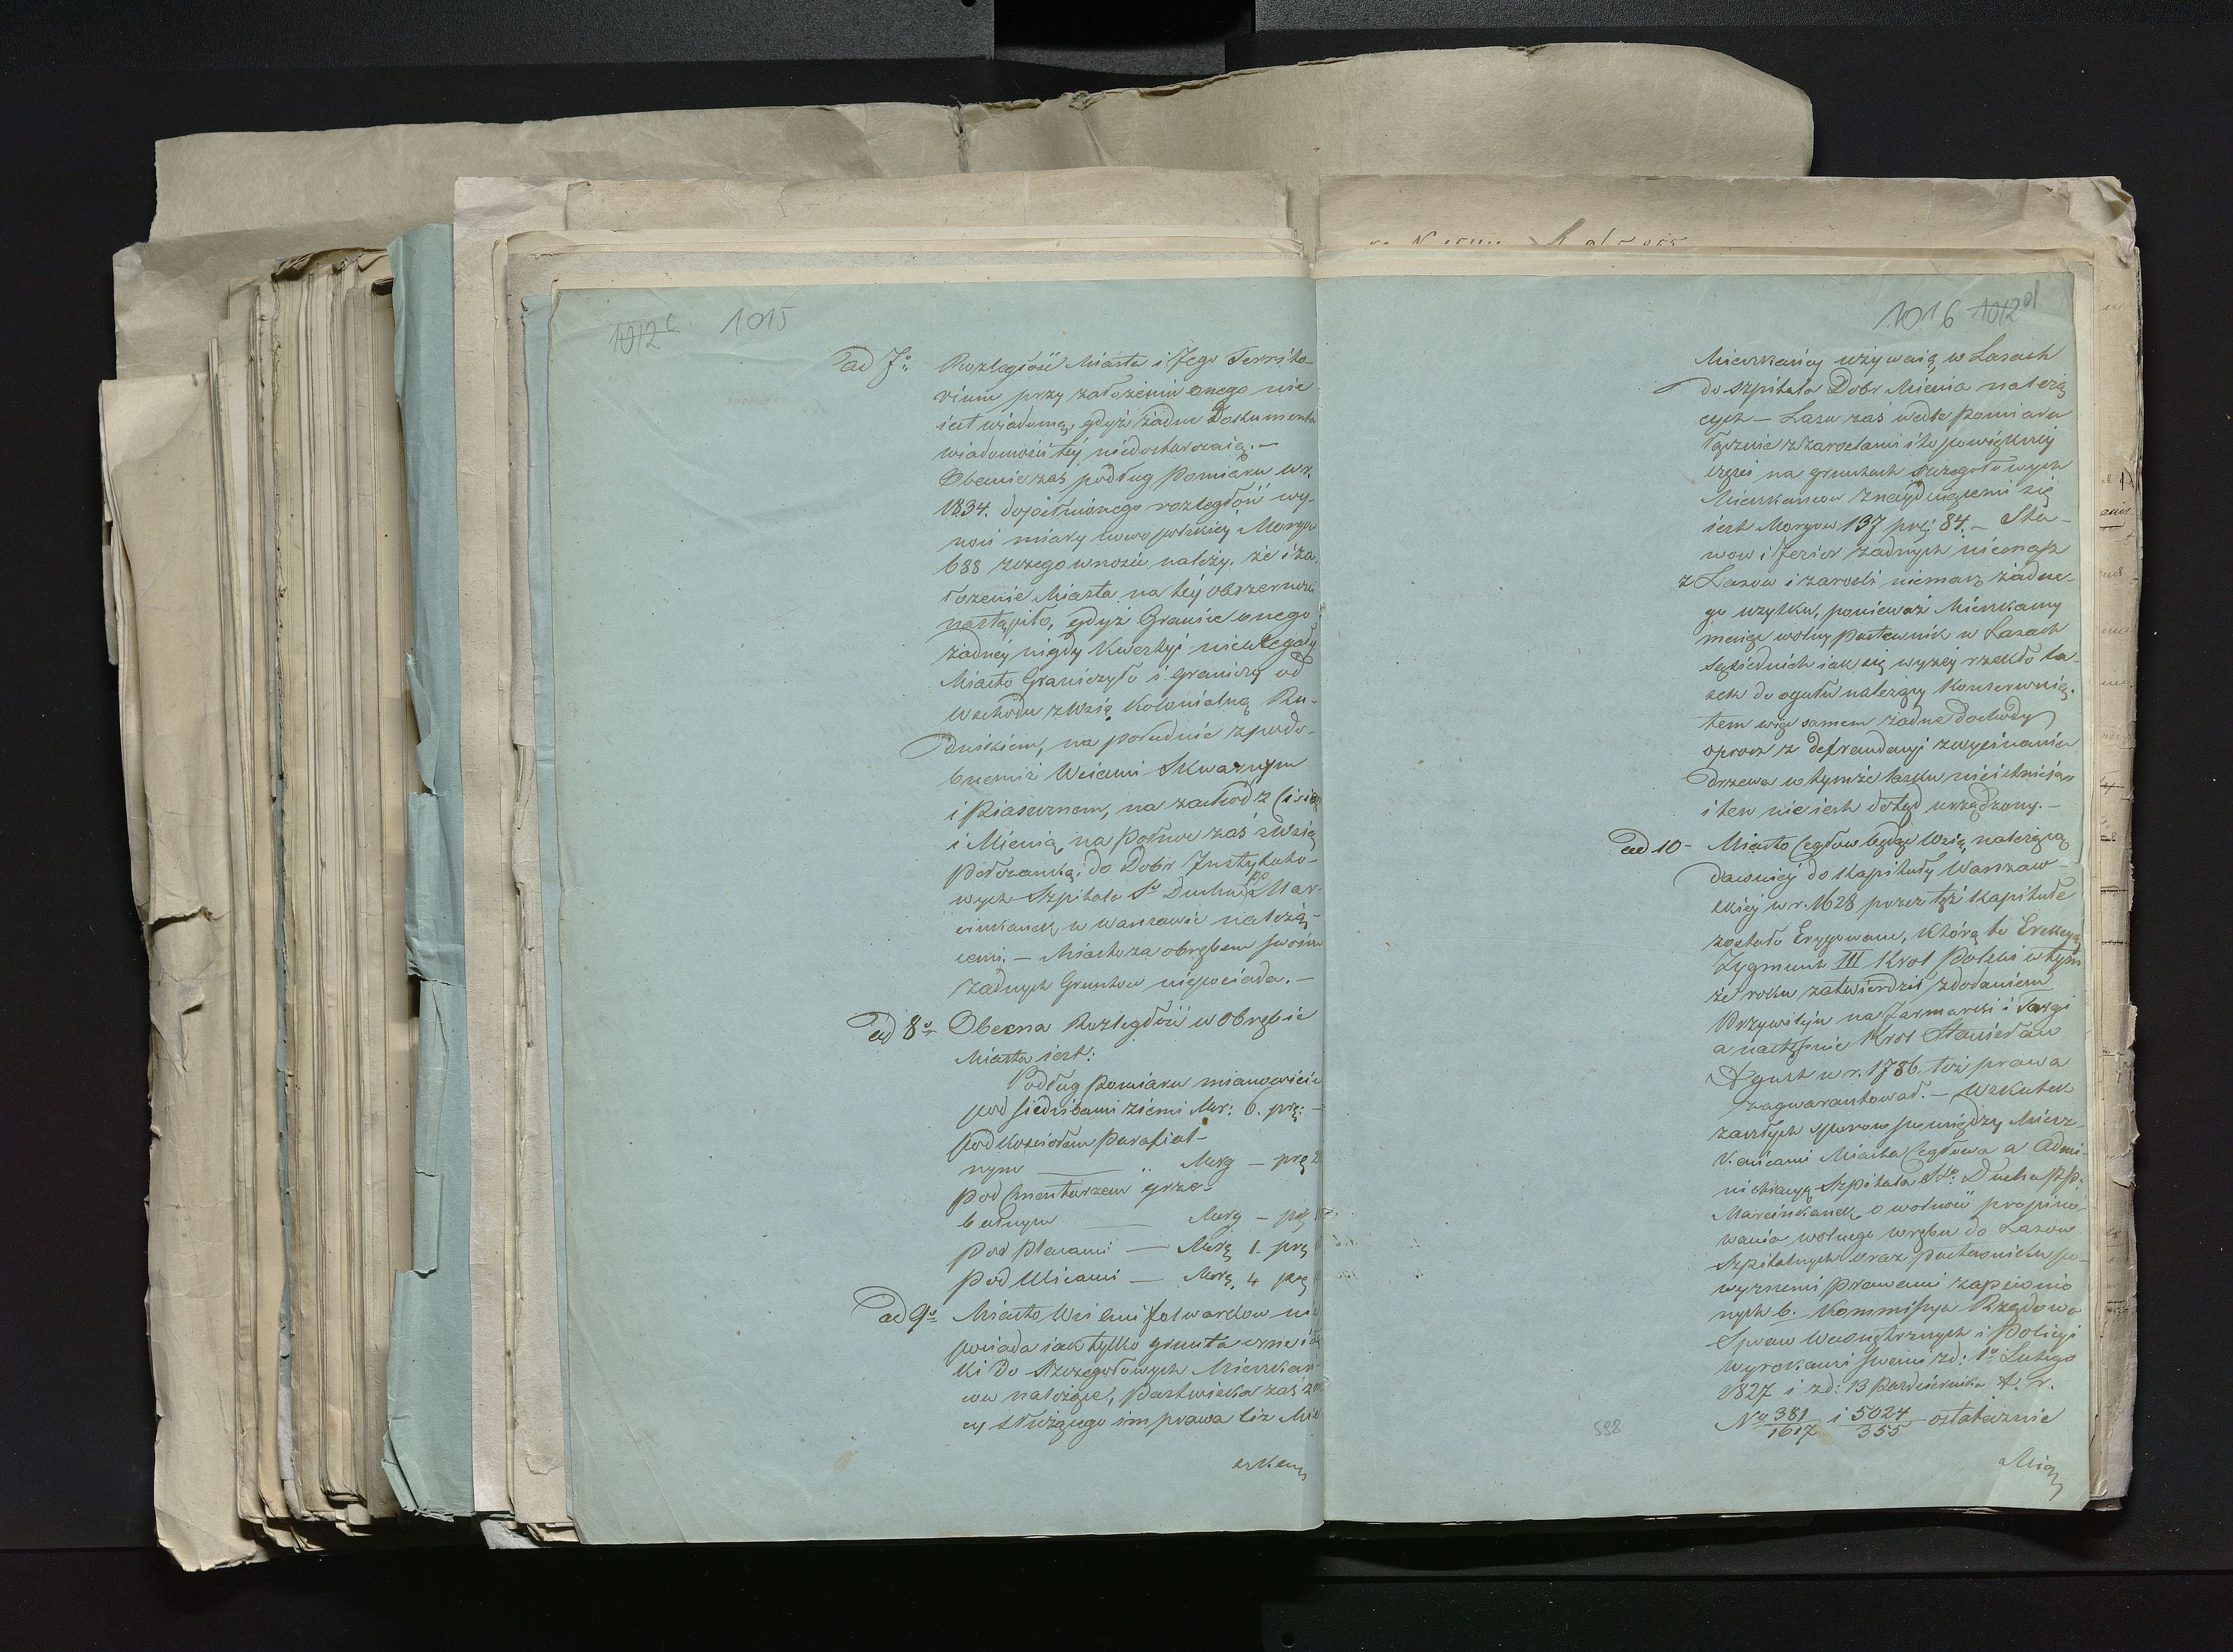 1012c 1015
ad 7o Rozległość Miasta i Jego Territo-
rium przy założeniu onego nie
iest wiadomą, gdyż żadne Dokumenta
wiadomości téy niedostarczaią. —
Obecnie zaś podług Pomiaru w r.
1834. dopełnionego rozległość wy-
nosi miary nowopolskiey Morgow
688 z czego wnosić należy, że i za-
łożenie Miasta na téy obszerności
nastąpiło, gdyż Granice onego
żadnéy nigdy Kwestyi nieuległy
Miasto Graniczyło i graniczy od
Wschodu z Wsią Kolonialną Ru-
dnikiem, na południe z podo-
bnemiż Wsiami Skwarnym
i Piasecznem, na zachód z Cisią
i Mienią, na Północ zaś z Wsią
Posczanką, do Dobr Instytuto-
wych Szpitala So Ducha i PP Mar-
cinkanek w Warszawie należą-
cemi. — Miasto za obrębem swoim
żadnych Gruntow nieposiada. —
ad 8o Obecna Rozległość w Obrębie
Miasta iest:
Podług Pomiaru mianowicie
pod siedzibami ziemi Mor: 6. prę: —
pod Kościołem Parafial-
nym — " Morg — prę 2
pod Cmentarzem grze-
balnym — Morg — prę
pod Placami — Morg 1. prę
pod Ulicami — Morg. 4 prę
ad 9o Miasto Wsi ani folwarkow nie
posiada iak tylko grunta orne i łą-
ki do Szczegołowych Mieszkań-
cow należące, Pastwiska zaś z mo-
cy służącego im prawa też Mie-
szkancy
1016 1012d
Mieszkańcy używaią w Lasach
do Szpitala Dobr Mienia należą
cych — Lasu zaś wedle Pomiaru
łącznie z Zaroślami i to po większéy
części na gruntach szczegołowych
Mieszkancow znayduiącemi się
iest Morgow 137 prę: 84. — Sta-
wow i Jezior żadnych niemasz
z Lasow i zarośli niemasz żadne-
go użytku, ponieważ Mieszkancy
maiąc wolny Pastewnik w Lasach
Sąsiednich iak się wyżéy rzekło la-
sek do ogułu należący Konserwuią.
tem więc samem żadne dochody
oprocz z defraudacyi z wycinania
drzewa w tymże lasku nieistnieią
i ten nie iest dotąd urządzony. —
ad 10 — Miasto Cegłow będąc Wsią należącą
dawniey do Kapituły Warszaw-
skiéy w r. 1628 przez tęż Kapitułe
zostało Erygowane, którą to Erekcyą
Zygmunt III Krol Polski w tym
że roku zatwierdził z dodaniem
Przywileju na Jarmarki i Targi
a następnie Krol Stanisław
Agust w r. 1786 toż prawa
zagwarantował. — Wskutek
zaszłych sporow pomiędzy Miesz-
kańcami Miasta Cegłowa a Admi-
nistracyą Szpitala So Ducha i PP.
Marcinkanek o wolność propino-
wania wolnego wrębu do Lasow
Szpitalnych oraz Pastewnika po-
wyższemi Prawami zapewnio
nych b. Kommissya Rządowa
Spraw Wewnętrznych i Policyi
Wyrokami swemi z d: 1o Lutego
1827 i z d: 13 Października t. r.
No 381/1617 i 5024/355 ostatecznie
588